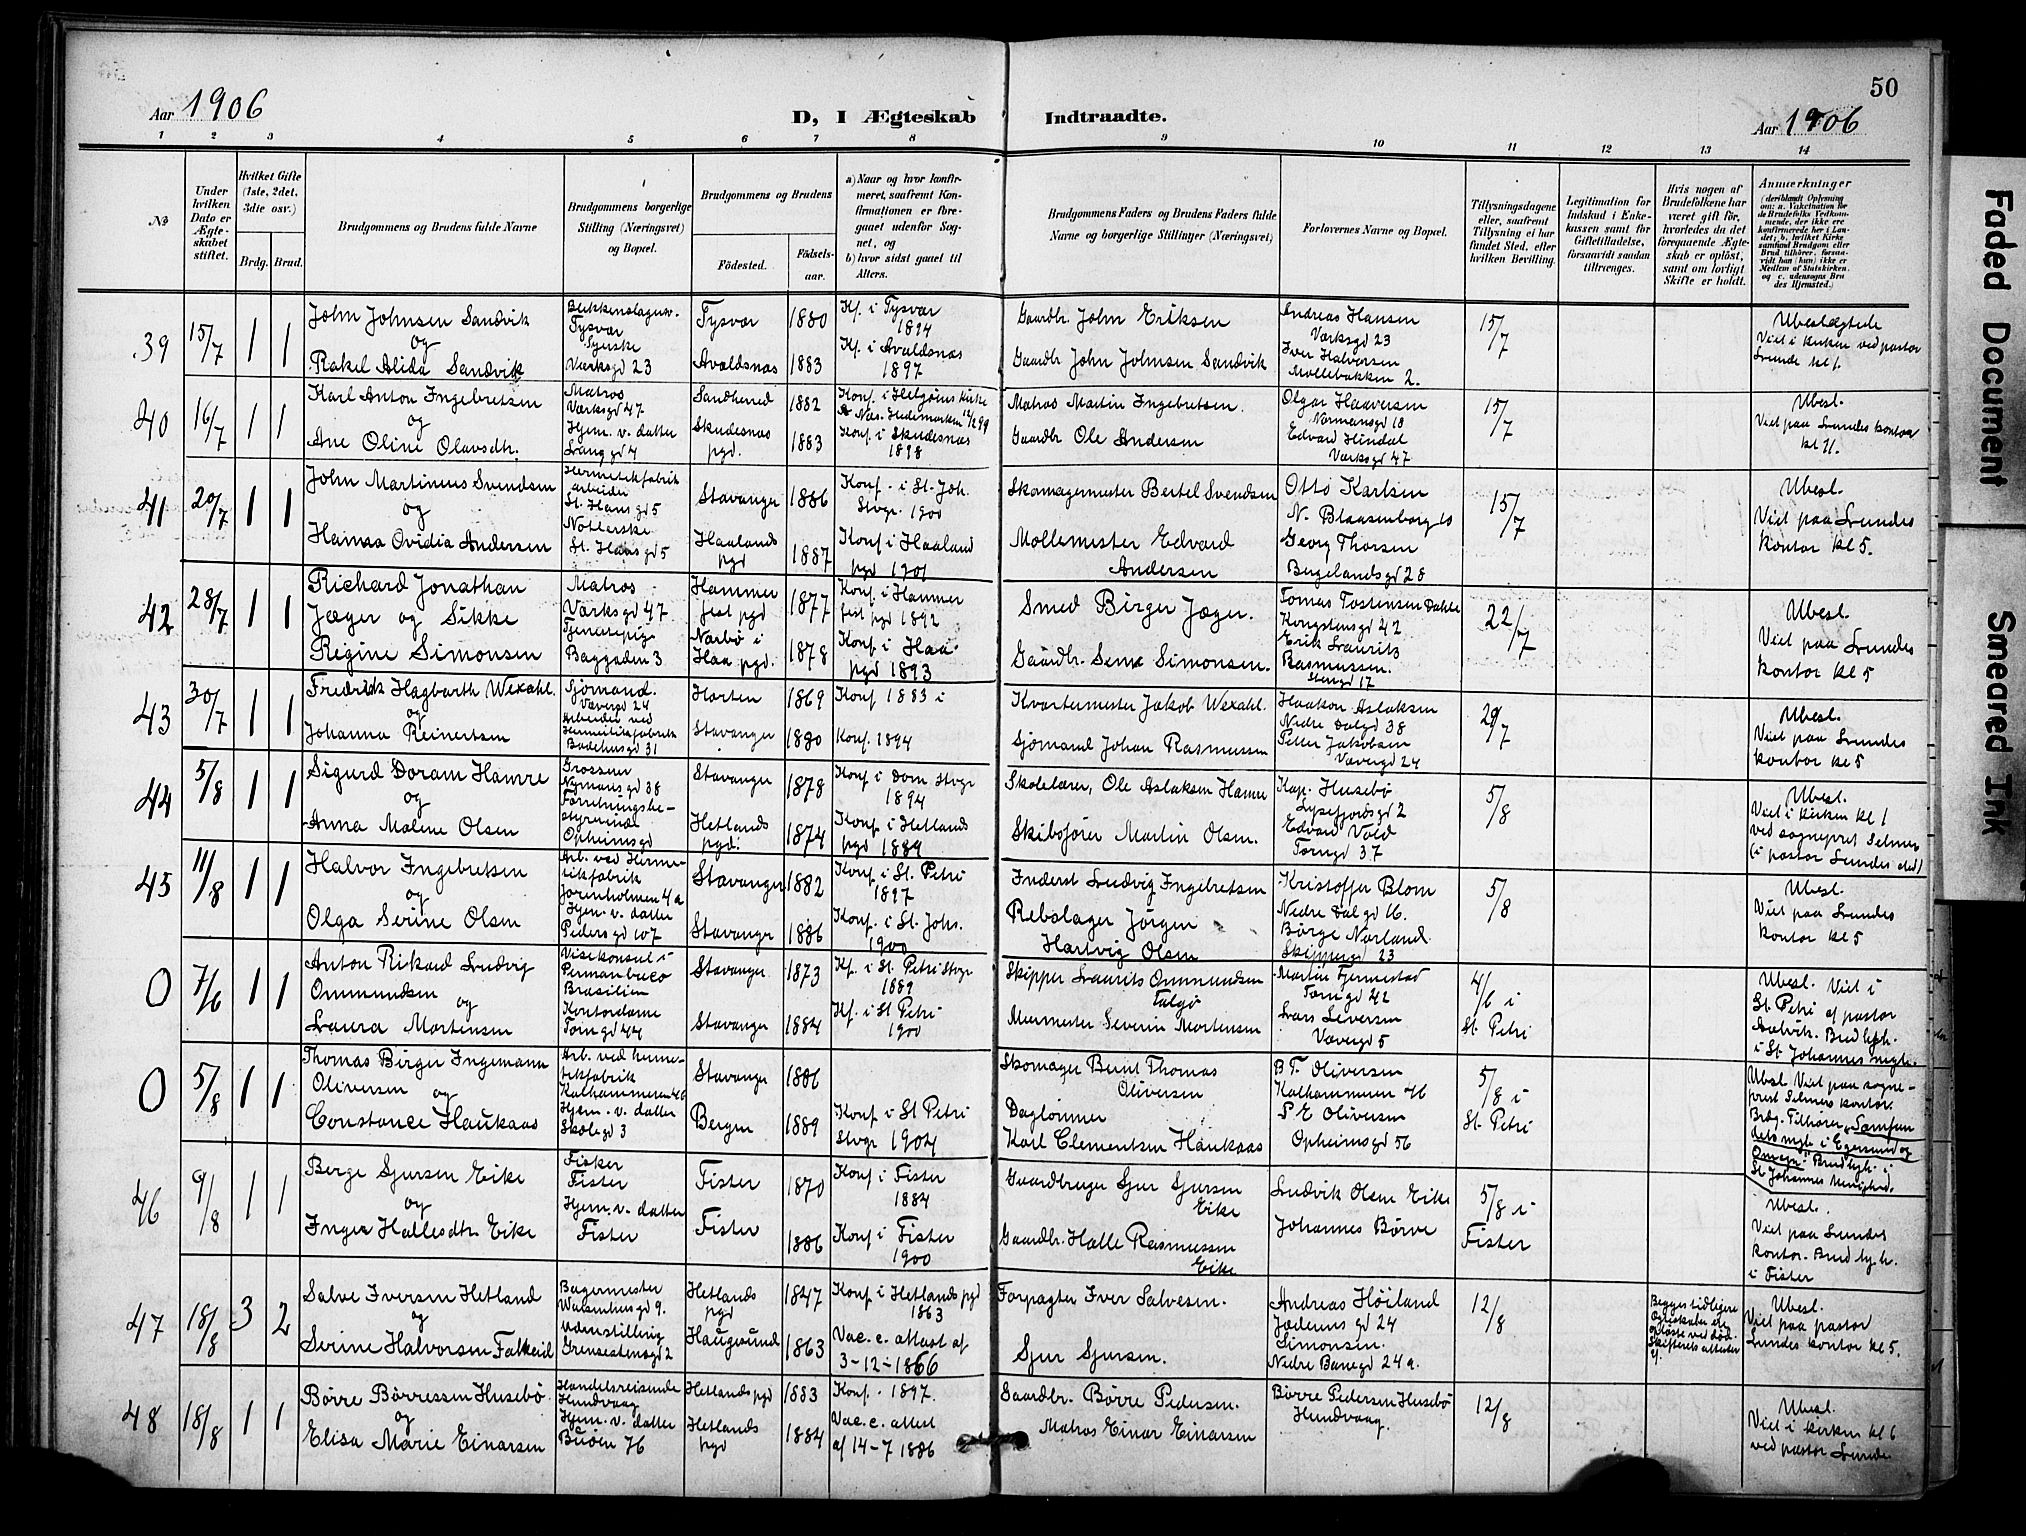 50
Aar 1906
D, I Ægteskab Indtraadte.
Aar 1906
1 2 3 4 5 6 7 8 9 10 11 12 13 14
№
Under hvilken Dato er Ægteskabet stiftet.
Hvilket Gifte (1ste, 2det, 3die osv.)
Brdg. Brud.
Brudgommens og Brudens fulde Navne
Brudgommens borgerlige Stilling (Næringsvei) og Bopæl.
Brudgommens og Brudens
Fødested.
Fødselsaar.
a) Naar og hvor konfirmeret, saafremt Konfirmationen er foregaaet udenfor Sognet, og
b) hvor sidst gaaet til Alters.
Brudgommens Faders og Brudens Faders fulde Navne og borgerlige Stillinger (Næringsvei)
Forlovernes Navne og Bopæl.
Tillysningsdagene eller, saafremt Tillysning ei har fundet Sted, efter hvilken Bevilling.
Legitimation for Indskud i Enkekassen samt for Giftetilladelse, forsaavidt saadan tiltrænges.
Hvis nogen af Brudefolkene har været gift før, hvorledes da det foregaaende Ægteskab er opløst, samt om lovligt Skifte er holdt.
Anmærkninger (deriblandt Oplysning om: a. Vakcination for de Brudefolks Vedkommende, der ikke ere konfirmerede her i Landet; b. hvilket Kirkesamfund Brudgom eller Brud tilhører, forsaavidt han (hun) ikke er Medlem af Statskirken, og c. udensogns Brudes Hjemsted.)
39 15/7 1 1
John Johnsen Sandvik
og
Rakel Alida Sandvik
Blikkenslagersv.
Tysvær
Syerske
Værksgd 23
Tysvær 1880
Avaldsnæs 1883
Kf. i Tysvær
1894
Kf. i Avaldsnæs
1897
Gaardbr. John Eriksen
Gaardbr John Johnsen Sandvik
Andreas Hansen
Værksgd 23
Iver Halvorsen
Møllebakken 2.
15/7
Ubeslægtede
Viet i kirken ved pastor
Lunde kl 1.
40 16/7 1 1
Karl Anton Ingebretsen
og
Ane Oline Olavsdtr.
Matros
Værksgd 47
Hjem. v. datter
Langgd 4
Sandhered 1882
Skudesnæs
pgd. 1883
Konf. i Helgøens Kirke
Næs. Hedemarken
Konf. i Skudesnæs
1898
Matros Martin Ingebretsen.
Gaardbr Ole Andersen
Olgar Haaversen
Normansgd 18
Edvard Hindal
Værksgd 47
15/7
Ubesl.
Viet paa Lundes kontor
kl 11.
41 20/7 1 1
John Martinius Svendsen
og
Hanna Ovidia Andersen
Hermetikfabrik
arbeider
St. Hansgd 5
St. Hansgd 5
Stavanger 1886
Haalands
pgd 1887
Konf. i St. Joh.
Stvgr. 1900
Konf i Haaland
pgd 1901
Skomagermester Bertel Svendsen
Møllemester Edvard
Andersen
Otto Karlsen
N. Blaasenborg 10
Georg Thorsen
Bergelandsgd 28
15/7
Ubesl.
Viet paa Lundes
kontor kl 5.
42 28/7 1 1
Richard Jonathan
Jæger og Sikke
Regine Simonsen
Matros
Værksgd 47
Tjenestepige
Baggaden 3
Hammer
fest pgd 1877
Nærbø i
Haa pgd. 1878
Konf. i Hammer
fest pgd 1892
Konf. i Haa
pgd 1893
Smed Birger Jæger.
Gaardbr. Sem Simonsen.
Tomas Tostensen Dahle
Kongstensgd 42
Erik Laurits
Rasmussen.
Stengd 17
22/7
Ubesl.
Viet paa Lundes
kontor kl 5
43 30/7 1 1
Fredrik Hagbarth Wexahl.
og
Johanna Reinertsen
Sjømand.
Vævergd 24
Arbeider ved
Hermetikfabrik
Badehusgd 31
Horten 1869
Stavanger 1880
Konf 1883 i
Konf. 1894
Kvartermester Jakob Wexahl.
Sjømand Johan Rasmussen
Haakon Aslaksen
Nedre Dalgd 38
Peder Jakobsen
Vævergd 24
29/7
Ubesl.
Viet paa Lundes
kontor kl 5
44 5/8 1 1
Sigurd Doram Hamre
og
Anna Malene Olsen
Grosserer
Nymansgd 38
Forretningsbe-
styrerinde
Opheimsgd
Stavanger 1878
Hetlands
pgd. 1874
Konf i Dom Stvgr
1894
Konf. i Hetlands
pgd 1889
Skolelærer, Ole Aslaksen Hamre
Skibsfører Martin Olsen.
Kap. Husebø
Lysefjordsgd 2
Edvard Vold
Torngd 37
5/8
Ubesl.
Viet i kirken kl 1
ved sognepret Selmer
(i pastor Lundes sted)
45 11/8 1 1
Halvor Ingebretsen
og
Olga Serine Olsen
Arb. ved Herme-
tikfabrik
Jorenholmen 4a
Hjem. v. datter
Pedersgd 107
Stavanger 1882
Stavanger 1886
Konf i St. Petri
1897
Konf. i St. Johs.
1900
Inderst Ludvig Ingebretsen
Rebslager Jørgen
Hartvig Olsen
Kristoffer Blom
Nedre Dalgd 16.
Børge Norland.
Skippergd 23
5/8
Ubesl.
Viet paa Lundes
kontor kl 5
0 7/6 1 1
Anton Rikard Ludvig
Ommundsen og
Laura Mortensen
Visekonsul i
Pernanbuco
Brasilien
Kontordame
Torngd 44
Stavanger 1873
Stavanger 1884
Kf. i St. Petri Stvgr
1889
Kf. i St Petri
1900
Skipper Laurits Ommundsen
Talgø
Murmester Severin Mortensen
Martin Fjermestad
Torngd 42
Lars Seversen
Vævergd 5
4/6 i
St. Petri
Ubesl. Viet i
St. Petri af pastor
Aalvik. Bred lysh.
i St. Johannes megh.
0 5/8 1 1
Thomas Birger Ingemann
Oliversen og
Constance Haukaas
Arb. ved herme-
tikfabrik
Kalhammeren 46
Hjem. v. datter
Skolegd 3
Stavanger 1886
Bergen 1889
Konf. i St Petri
Stvgr 1904
Skomager Bernt Thomas
Oliversen
Daglønner
Karl Clementsen Haukaas
B T. Oliversen
Kalhammeren 46
P E Oliversen
Opheimsgd 56
5/8 i
St. Petri
Ubesl Viet paa sogne-
prest Selmers kontor.
Brdg. Tilhører Samfun
dets megh i Egersund og
Omegn. Brud lysh. i
St Johannes Menighed.
46 9/8 1 1
Berge Sjursen Eike
og
Inger Hallesdtr Eike
Fisker
Fister
Hjem. v. datter
Fister
Fister 1870
Fister 1886
Konf i Fister
1884
Konf i Fister
1900
Gaardbruger Sjur Sjursen
Eike
Gaardbr. Halle Rasmussen
Eike
Ludvik Olsen Eike
Johannes Børve
5/8 i
Fister
Ubesl.
Viet paa Lundes
kontor. Brud lysh.
i Fister
47 18/8 3 2
Salve Iversen Hetland
og
Serine Halvorsen Falkeid
Bagermester
Vaisenhusgd 9.
Udenstilling
Grensestensgd 2
Hetlands
pgd 1847
Haugesund 1863
Konf i Hetlands pgd
1863
Vac. c. attest af
3-12-1866
Forpagter Iver Salvesen.
Sjur Sjursen.
Andreas Høiland
Jæderens gd 24
Simonsen.
Nedre Banegd 24a.
12/8
Begges tidligere
Ægteskaber er
opløste ved død.
Skifterets attester
Ubesl.
Viet paa pastor
Lundes kontor kl 5.
48 18/8 1 1
Børre Børressen Husebø
og
Elisa Marie Einarsen
Handelsreisende
Hundvaag
Hjem. v. datter
Buøen 76
Hetlands pgd 1883
Hetlands
pgd 1884
Konf. 1897.
Vac. c. attest
af 14-7 1886
Gaardbr. Børre Pedersen.
Matros Einar Einarsen
Børre Pedersen Husebø
Hundvaag.
12/8
Ubesl.
Viet i kirken kl 6
ved pastor Lunde
Faded Document
Smeared Ink